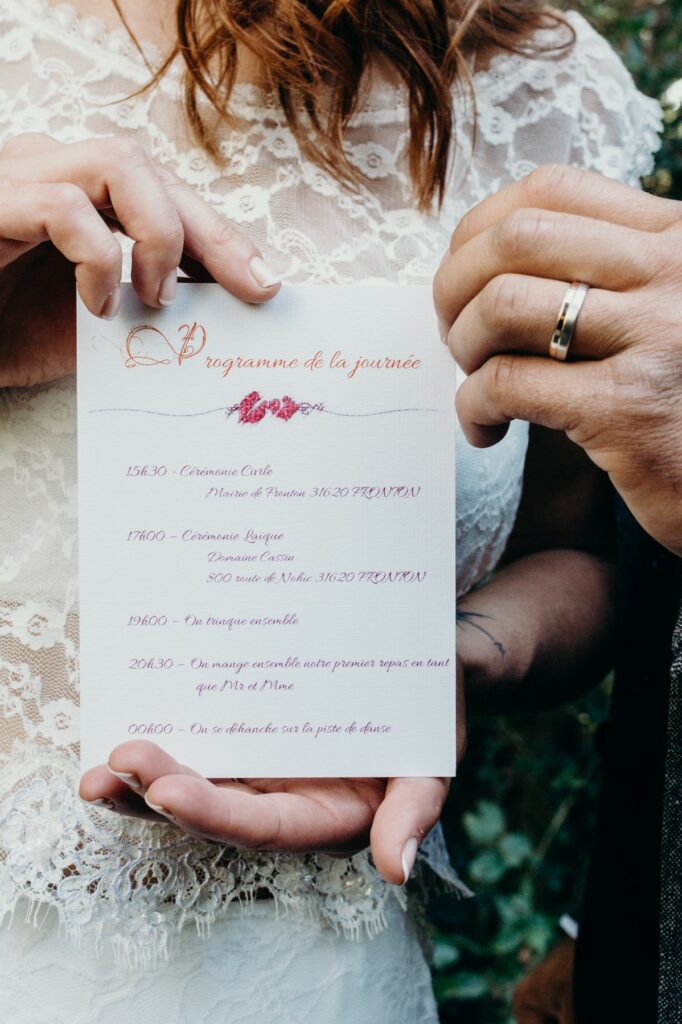 Programme de la journée
15h30 - Cérémonie Civile
Mairie de Fronton 31620 FRONTON
17h00 - Cérémonie Laïque
Domaine Cassin
800 route de Nohic 31620 FRONTON
19h00 - On trinque ensemble
20h30 - On mange ensemble notre premier repas en tant
que Mr et Mme
00h00 - On se déhanche sur la piste de danse